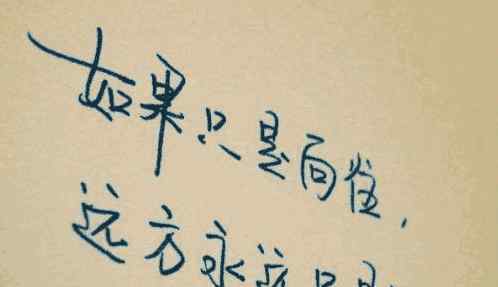 如果只是向往,
远方永远只是